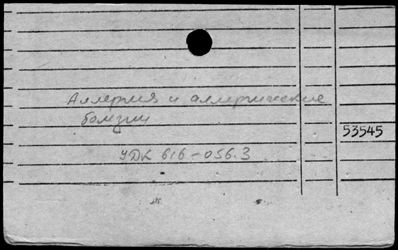 Аллергия и аллергические
болезни
53545
УДК 616-056.3